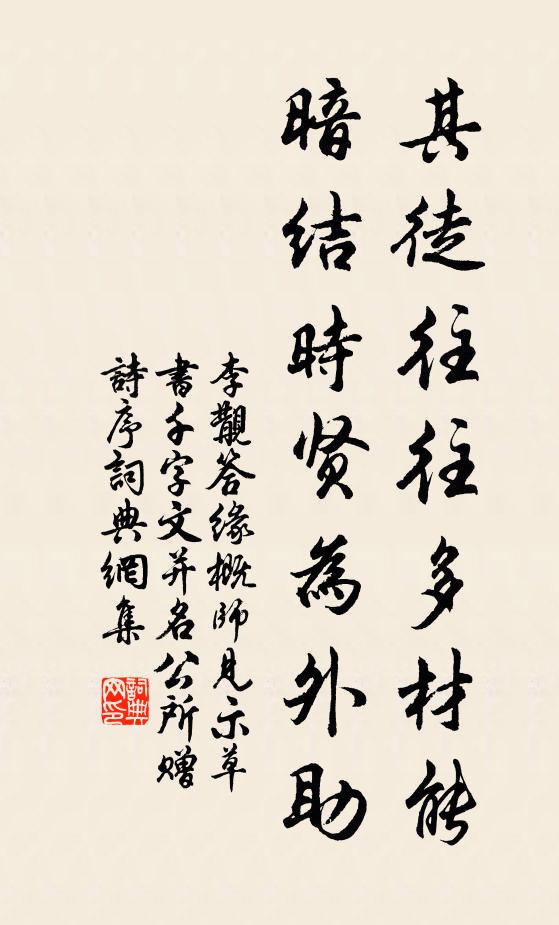 其徒往往多材能
暗结時贤為外助
李觏答缘概師見示草
書千字文并名公所贈
詩序詞典網集
詞典网印